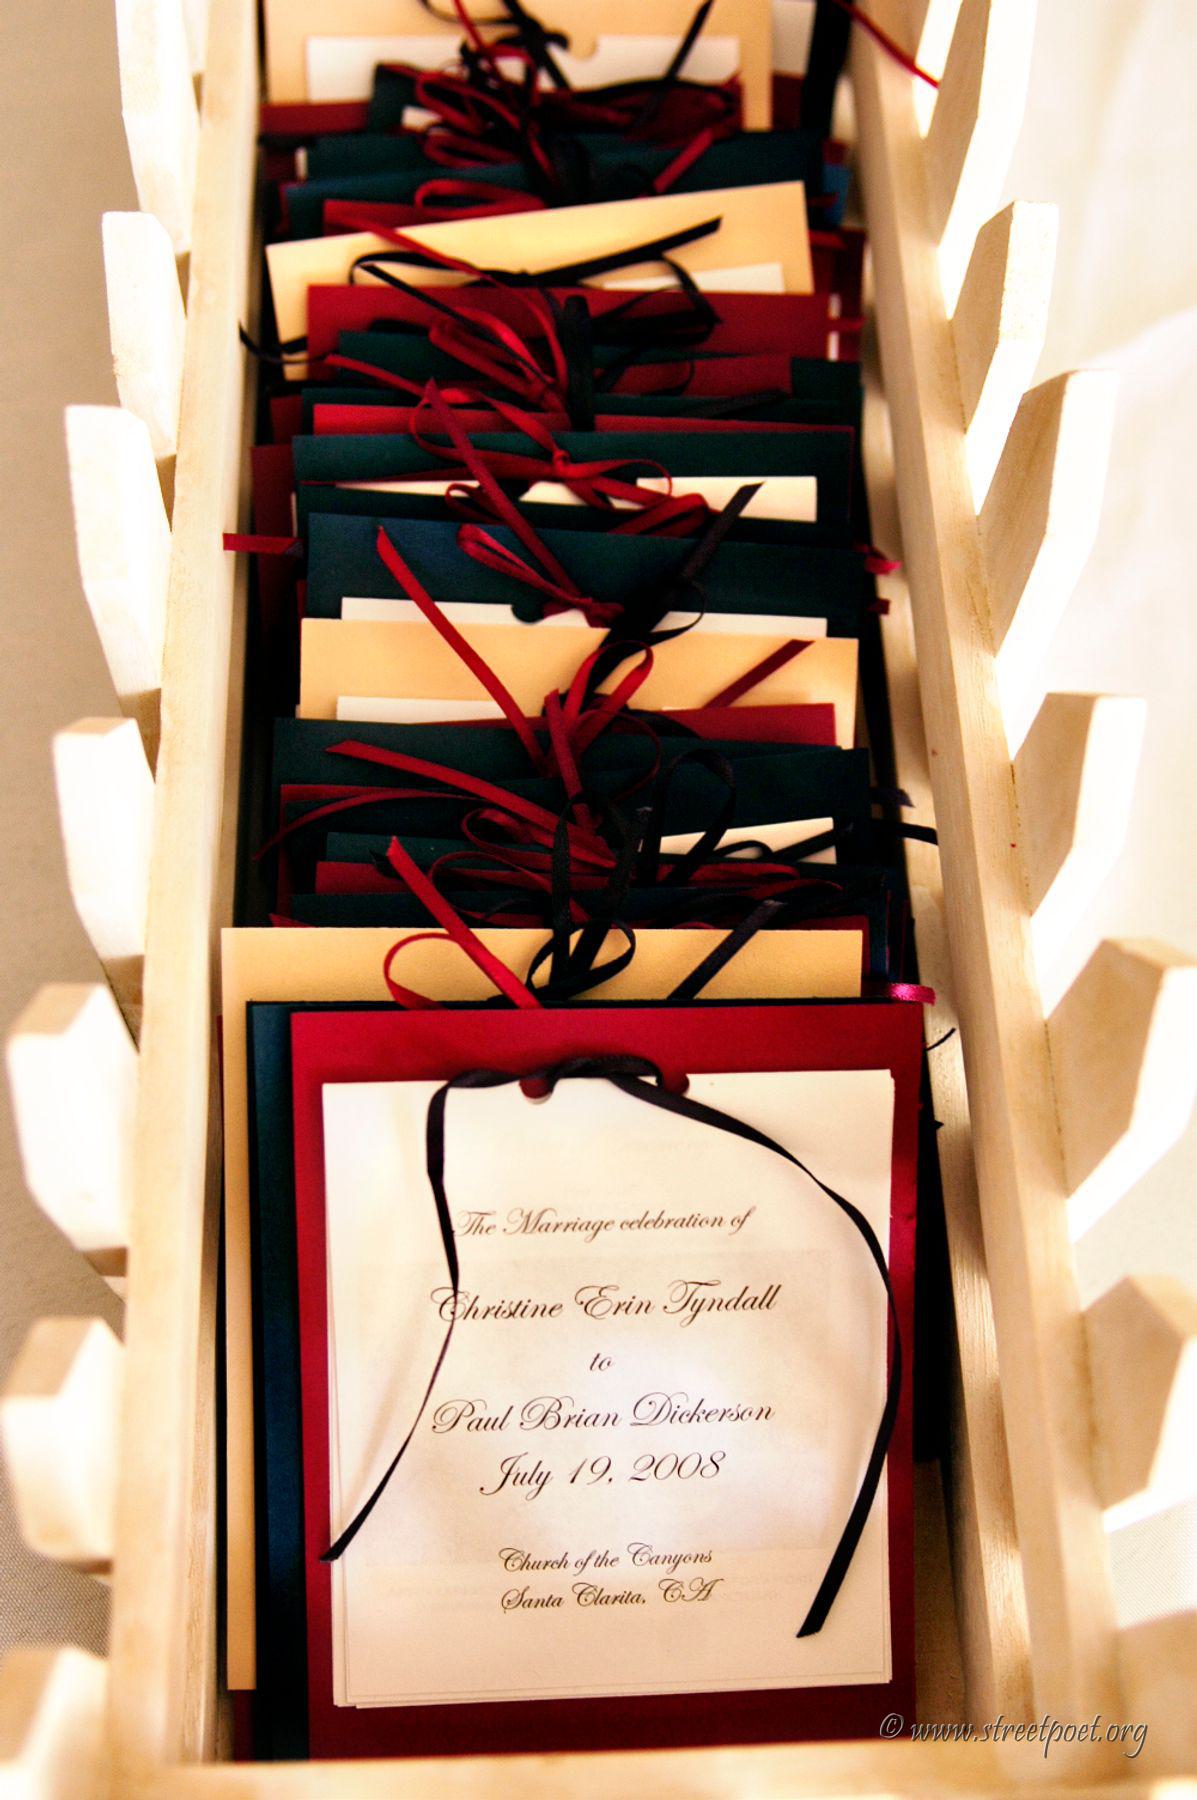 The Marriage celebration of
Christine Erin Tyndall
to
Paul Brian Dickerson
July 19, 2008
Church of the Canyons
Santa Clarita, CA
© www.streetpoet.org